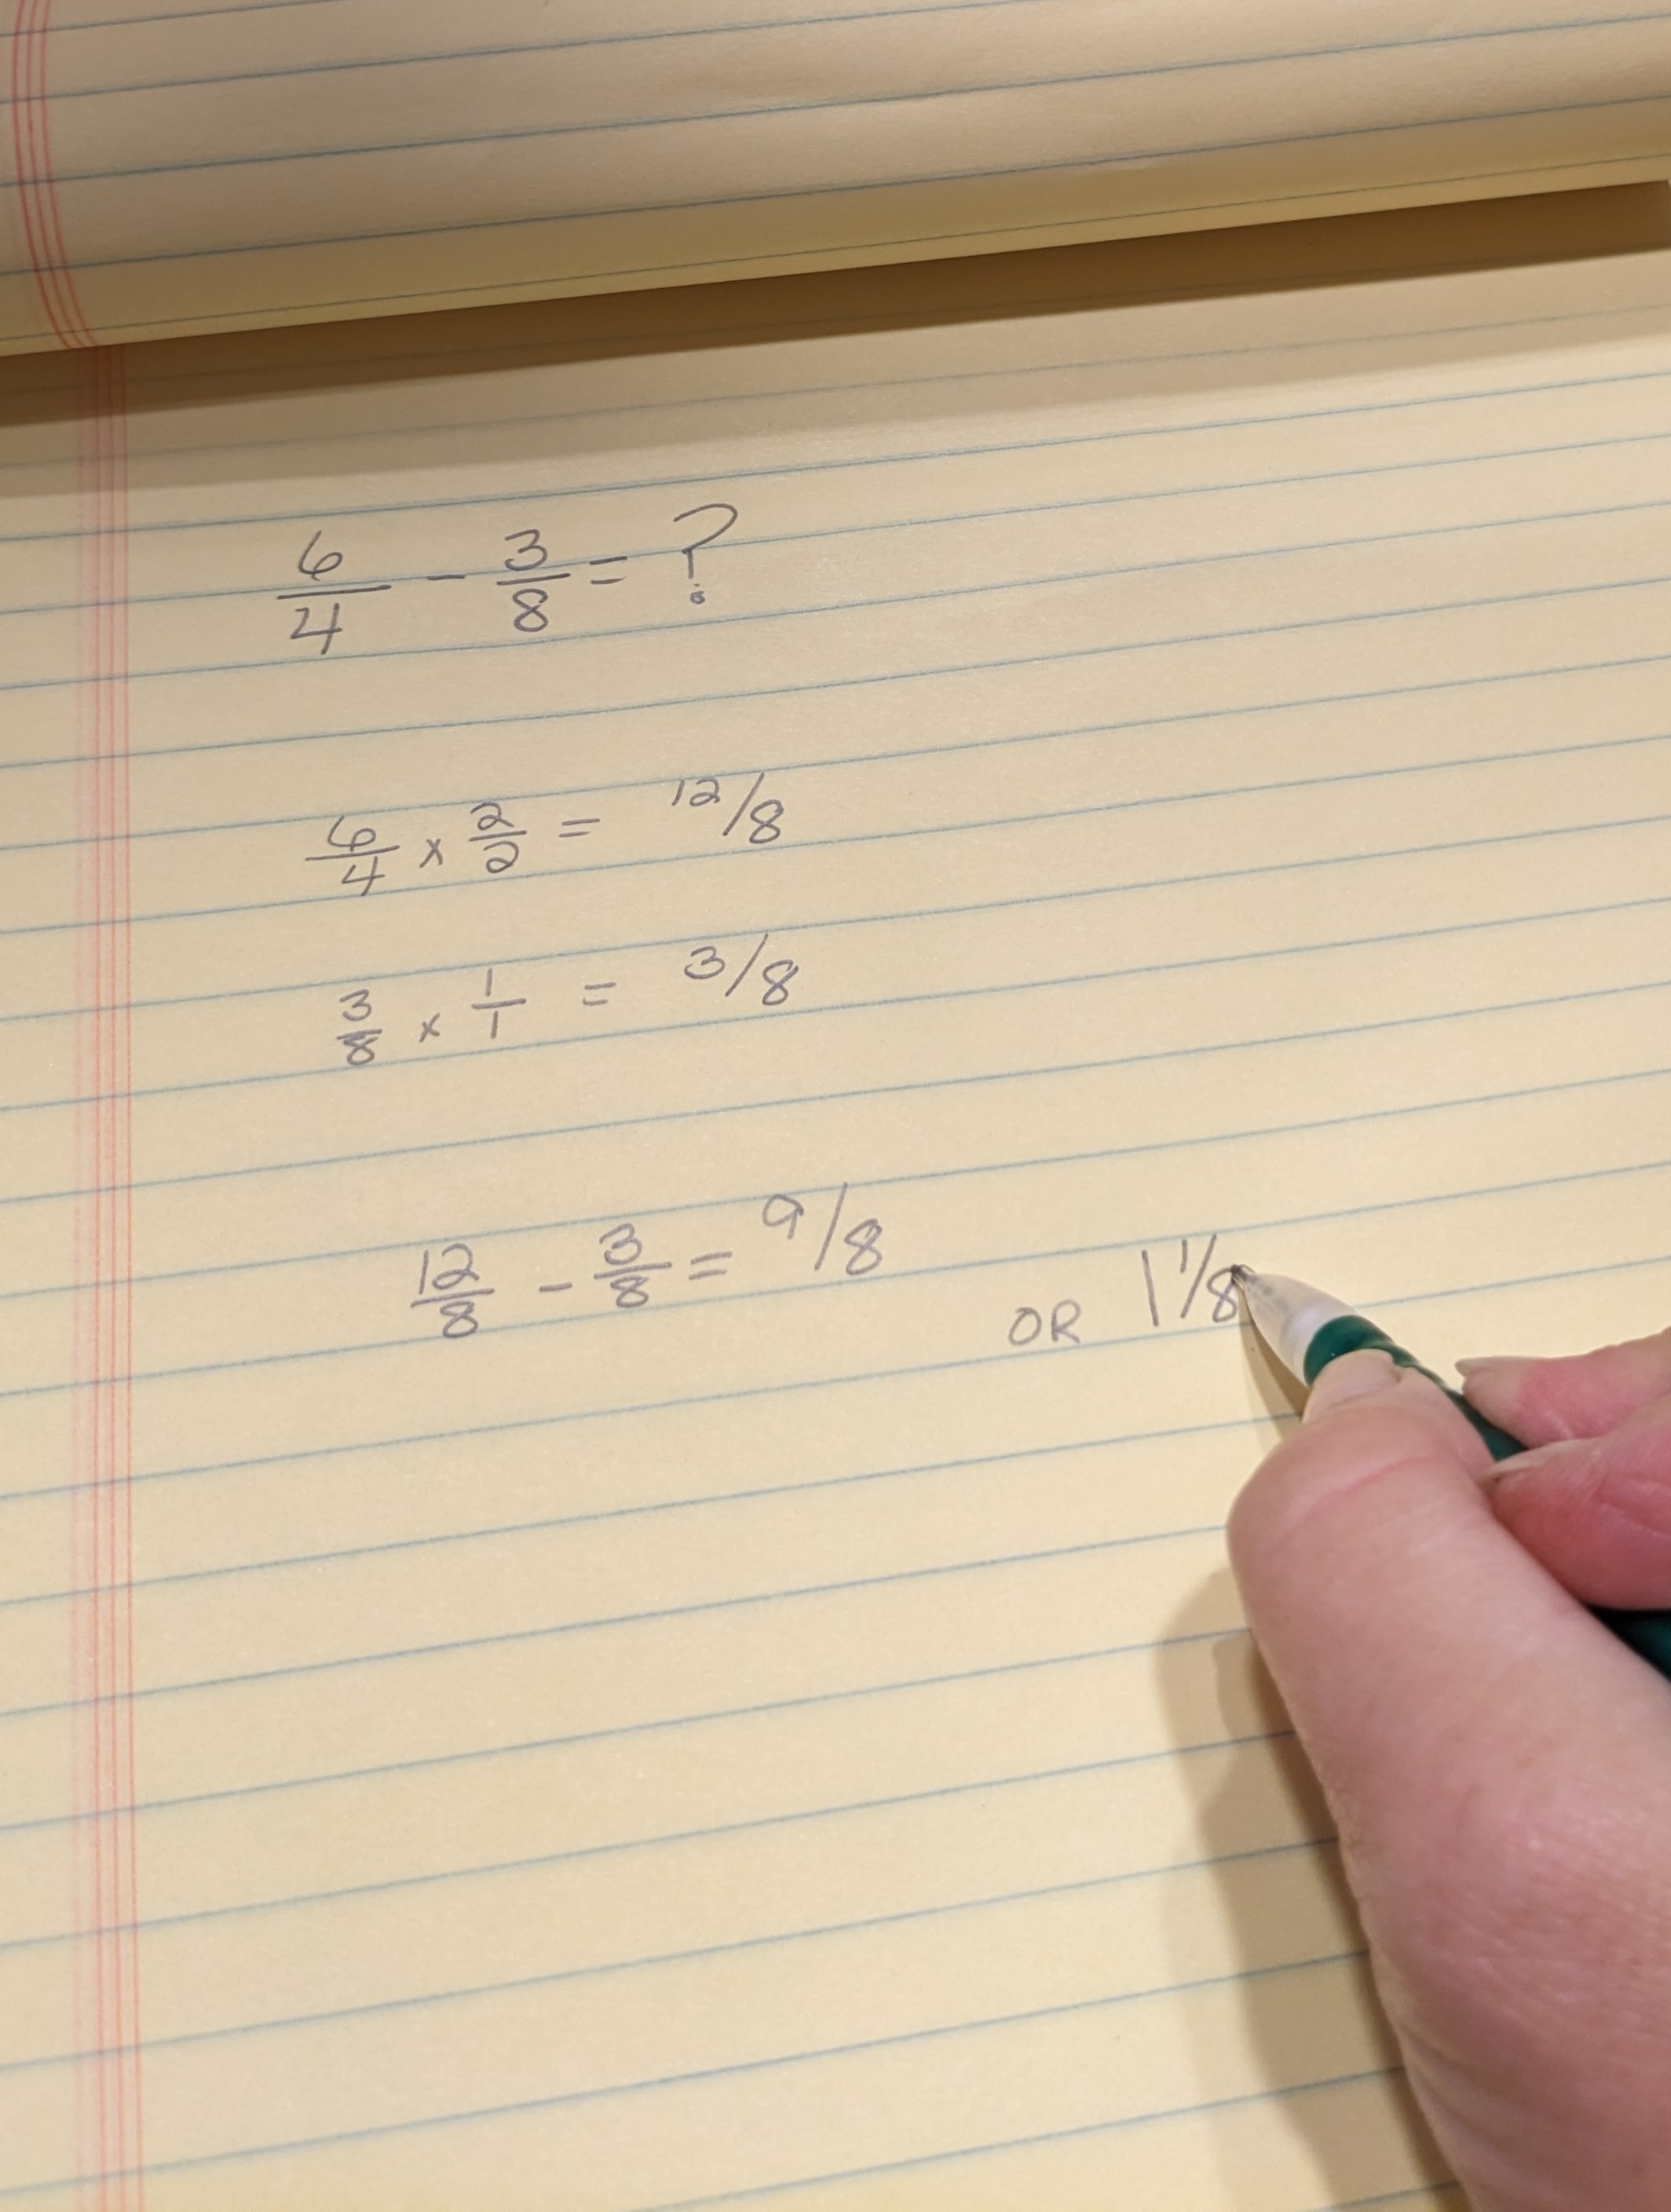 6/4 - 3/8 = ?
6/4 x 2/2 = 12/8
3/8 x 1/1 = 3/8
12/8 - 3/8 = 9/8 OR 1 1/8